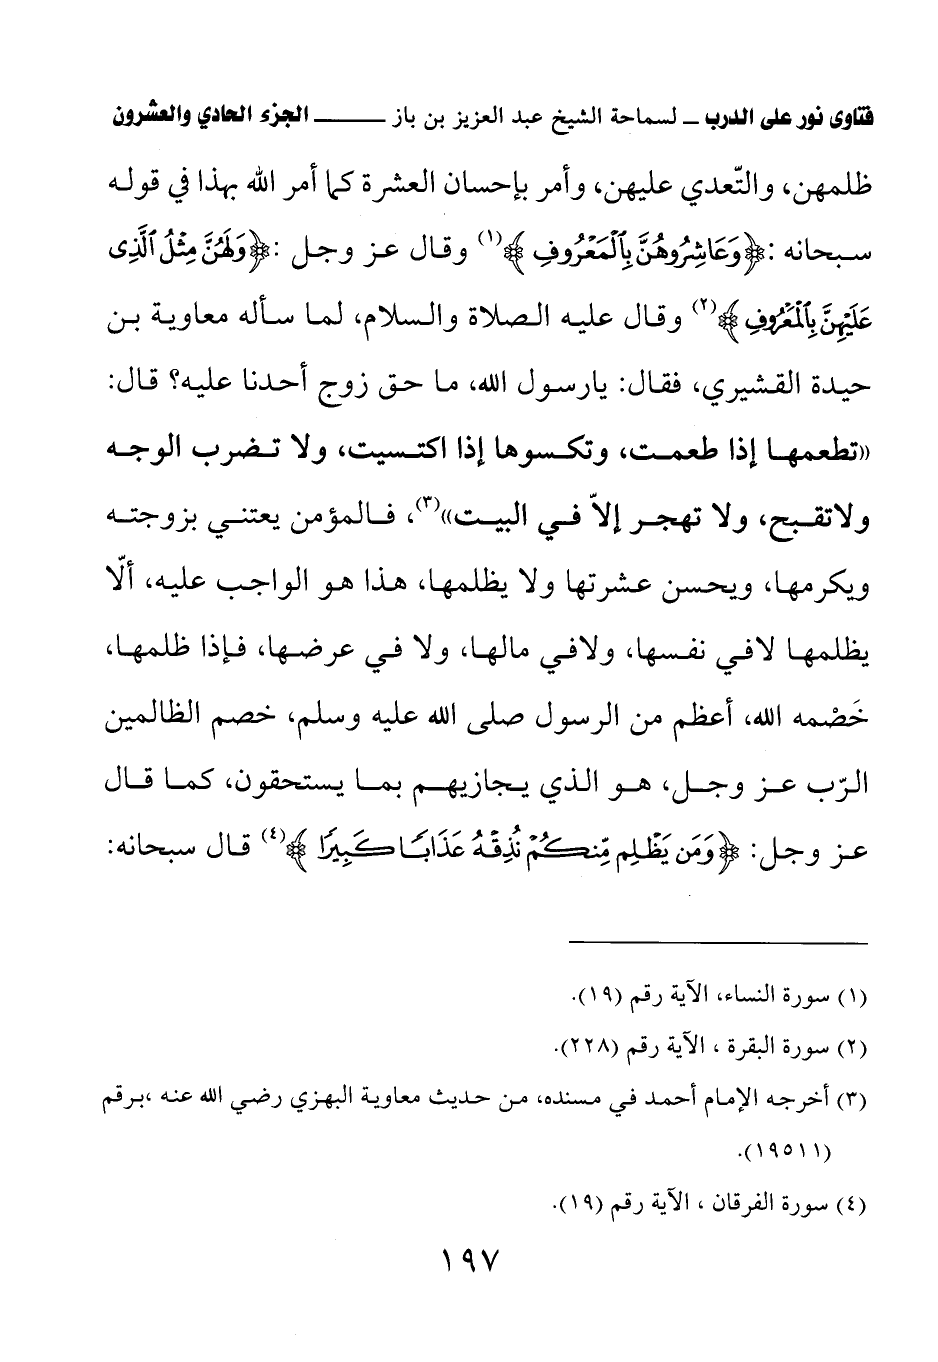 فتاوى نور على الدرب ــ لسماحة الشيخ عبد العزيز بن باز ــــــــ الجزء الحادي والعشرون
ظلمهن، والتّعدي عليهن، وأمر بإحسان العشرة كما أمر الله بهذا في قوله
سبحانه :﴿وَعَاشِرُوهُنَّ بِٱلْمَعْرُوفِ﴾(١) وقال عز وجل :﴿وَلَهُنَّ مِثْلُ ٱلَّذِى
عَلَيْهِنَّ بِٱلْمَعْرُوفِ﴾(٢) وقال عليه الصلاة والسلام، لما سأله معاوية بن
حيدة القشيري، فقال: يارسول الله، ما حق زوج أحدنا عليه؟ قال:
«تطعمها إذا طعمت، وتكسوها إذا اكتسيت، ولا تضرب الوجه
ولاتقبح، ولا تهجر إلاّ في البيت»(٣)، فالمؤمن يعتني بزوجته
ويكرمها، ويحسن عشرتها ولا يظلمها، هذا هو الواجب عليه، ألّا
يظلمها لافي نفسها، ولافي مالها، ولا في عرضها، فإذا ظلمها،
خَصْمه الله، أعظم من الرسول صلى الله عليه وسلم، خصم الظالمين
الرّب عز وجل، هو الذي يجازيهم بما يستحقون، كما قال
عز وجل: ﴿وَمَن يَظْلِم مِّنكُمْ نُذِقْهُ عَذَابًا كَبِيرًا﴾(٤) قال سبحانه:
(١) سورة النساء، الآية رقم (١٩).
(٢) سورة البقرة ، الآية رقم (٢٢٨).
(٣) أخرجه الإمام أحمد في مسنده، من حديث معاوية البهزي رضي الله عنه ،برقم
(١٩٥١١).
(٤) سورة الفرقان ، الآية رقم (١٩).
١٩٧